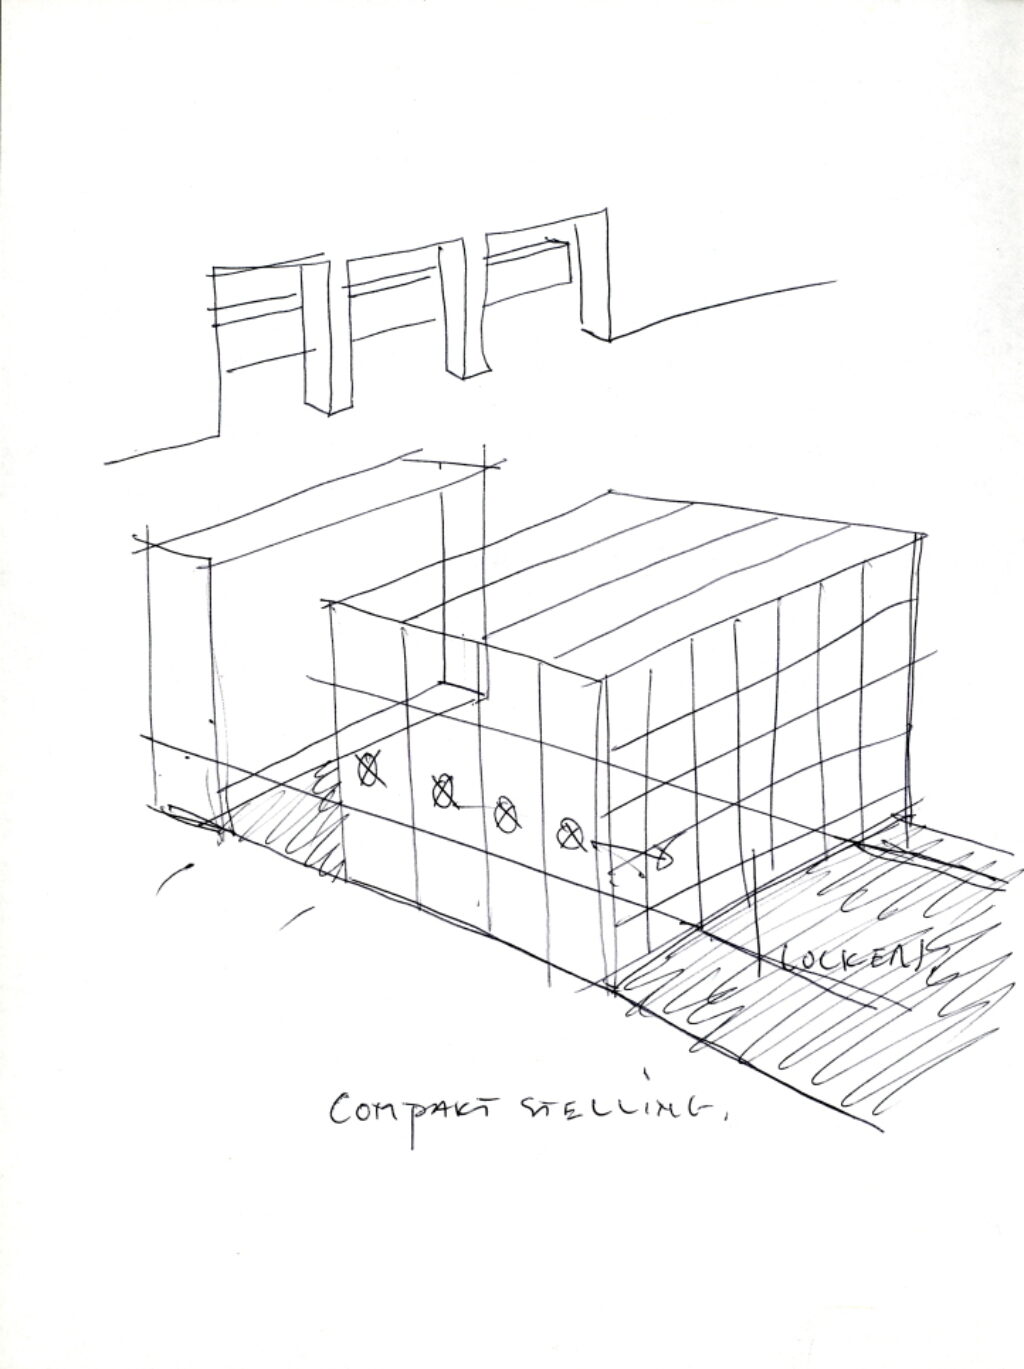 LOCKERS
COMPAKT STELLING.